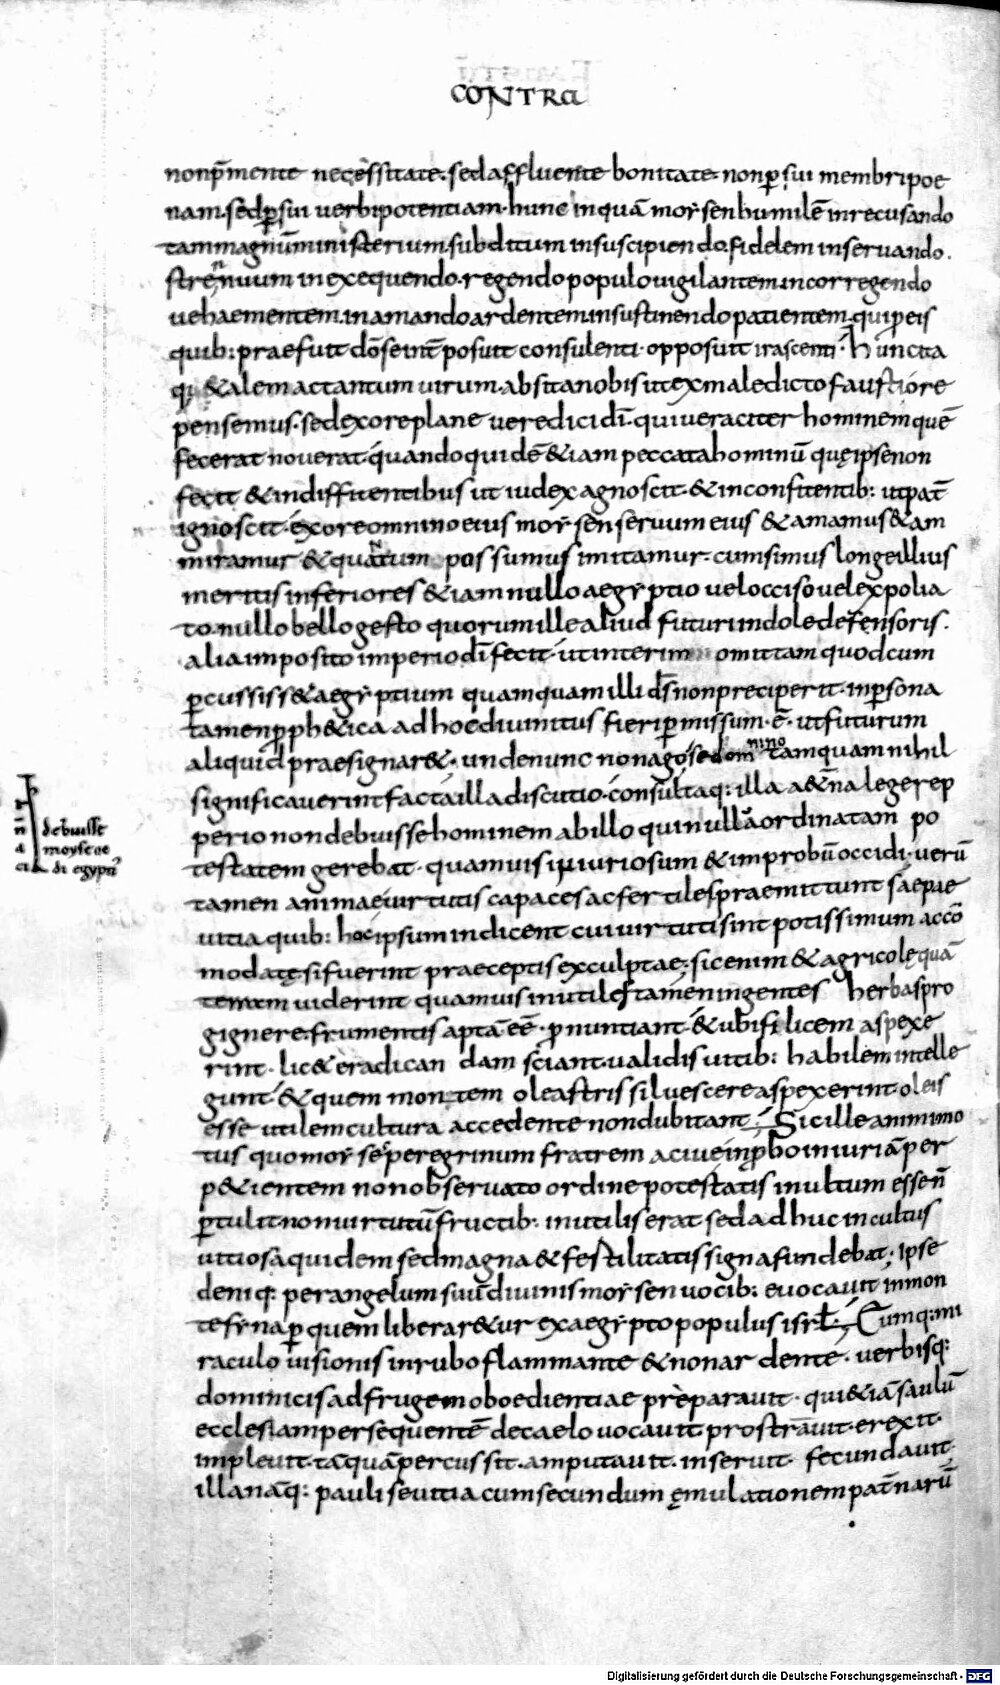 CONTRA
nonp̄mente necessitate. sed affluente bonitate. non ꝑ sui membri poe
nam. sed ꝑ sui verbi potentiam. hunc inquā moẏsen humilē in recusando
tam magnū ministerium. subditum in suscipiendo. fidelem in servando.
strennuum in exequendo. regendo populo vigilantem. in corregendo
vehaementem. in amando ardentem. in sustinendo patientem. qui ꝑ eis
quib: praefuit dō se int̄posuit consulenti. opposuit irascenti. Hunc ita
q; & alem ac tantum virum. absit a nobis ut ex maledicto faustiore
pensemus. sed ex ore plane veredici dī. qui veraciter hominem quē
fecerat noverat. quando quidē & iam peccata hominū quę ipse non
fecit & in diffitentibus ut iudex agnoscit. & in confitentib: ut pat̄
ignoscit. ex ore omnino eius moẏsen servum eius & amamus & am
miramur & quantum possumus imitamur. cum simus longe illius
meritis inferiores & iam nullo aegẏptio vel occiso vel expolia
to. nullo bello gesto quorum ille aliud futuri indole defensoris.
alia imposito imperio dī fecit. ut interim omittam quod cum
ꝑcussiss& aegẏptium quamquam illi d̄s non preciperit. in ꝑsona
tamen ꝓph&ica ad hoc divinitus fieri ꝑmissum .ē. ut futurum
aliquid praesignar&. unde nunc non ago sed omnino tamquam nihil
significaverint facta illa discutio. consultaq: illa a&̄na lege rep
perio non debuisse hominem ab illo qui nullā ordinatam po
testatem gerebat. quamvis iniuriosum & improbū occidi. verū
tamen animae virtutis capaces ac fertiles praemittunt saepae
vitia quib: hoc ipsum indicent cui virtuti sint potissimum accō
modatę si fuerint praeceptis exculptae. sic enim & agricolę quā
terram viderint quamvis inutiles tamen ingentes herbas pro
gignere. frumentis aptā eē ꝓnuntiant. & ubi filicem aspexe
rint. lic& eradicandam sciant. validis vitib: habilem intelle
gunt. & quem montem oleastris silvescere aspexerint. oleis
esse utilem cultura accedente non dubitant. Sic ille animi mo
tus quo moẏses peregrinum fratrem a cive inꝓbo iniuriā per
p&ientem non observato ordine potestatis inultum esse n̄
ꝑtulit. non virtutū fructib: inutilis erat sed adhuc incultus
vitiosa quidem sed magna & festilitatis signa fundebat. ipse
deniq: per angelum suū divinis moẏsen vocib: evocavit in mon
te sẏna ꝑ quem liberar&ur ex aegẏpto populus isrł. Cumq: mi
raculo visionis in rubo flammante & non ardente. verbisq:
dominicis ad frugem oboedientiae preparavit. qui & iā saulū
ecclesiam persequentē de caelo vocavit prostravit. erexit.
implevit. tāquā percussit. amputavit. inseruit. fecundavit.
illa nāq: pauli sevitia cum secundum ęmulationem pat̄narū
debuisse
moyse oc
di egypti
Digitalisierung gefördert durch die Deutsche Forschungsgemeinschaft - DFG